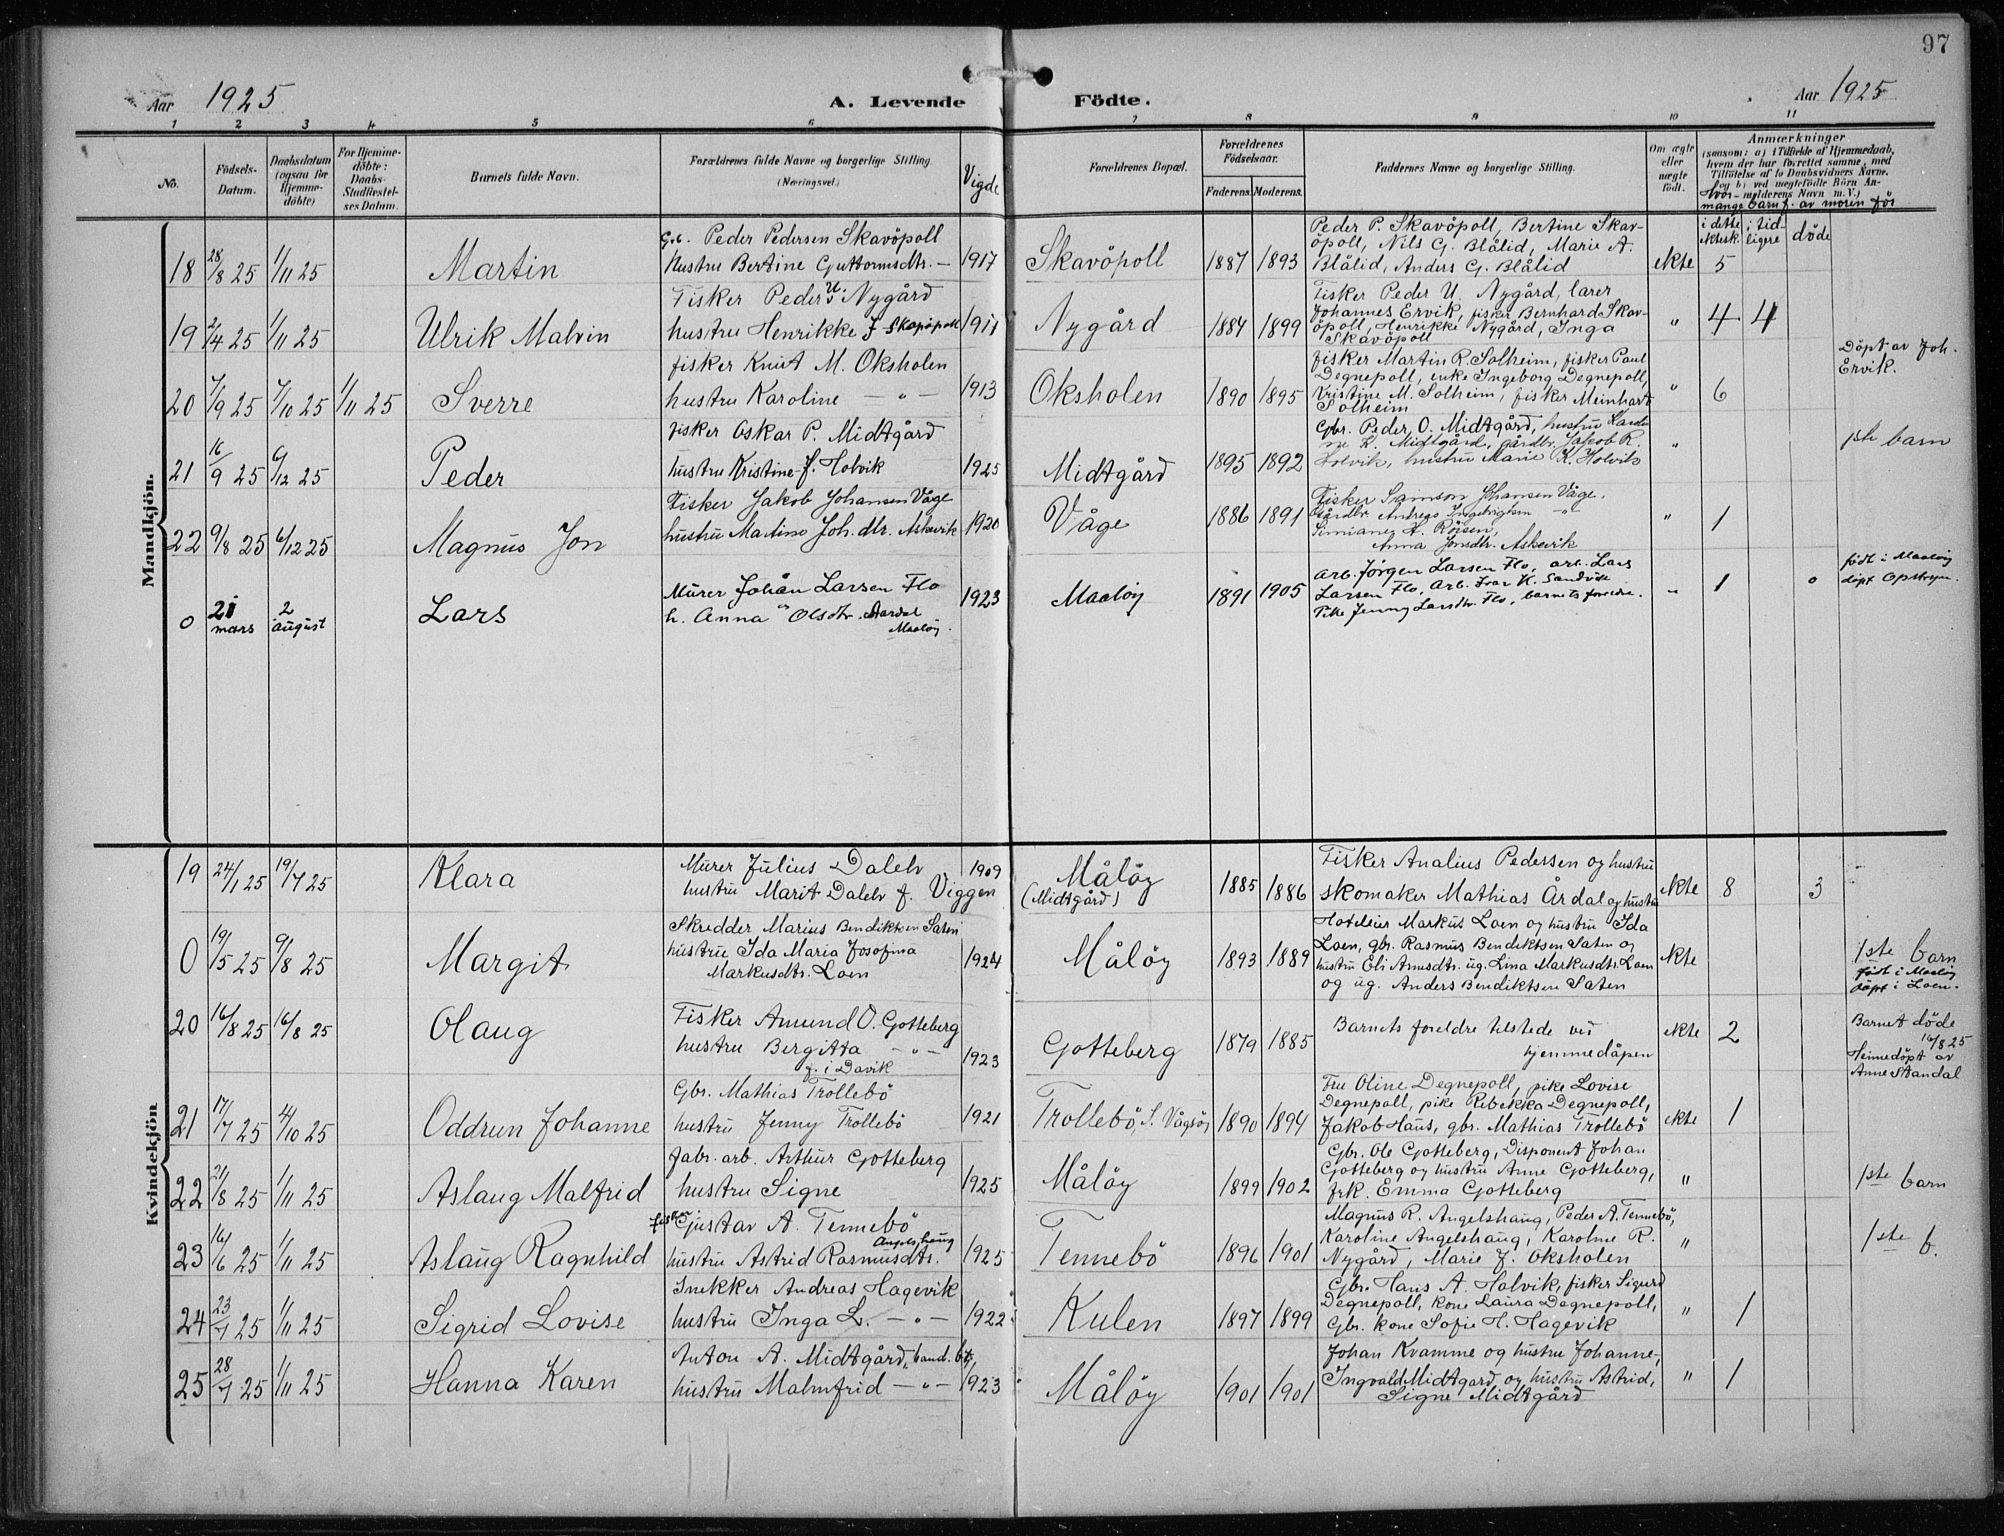 97
Aar 1925
A. Levende
Födte.
Aar 1925
1 2 3 4 5 6 7 8 9 10 11
No.
Födsels-
Datum.
Daabsdatum
(ogsaa för
Hjemme-
döbte)
For Hjemme-
döbte:
Daabs-
Stadfæstel-
ses Datum.
Barnets fulde Navn.
Forældrenes fulde Navne og borgerlige Stilling
(Næringsvei.)
Vigde
Forældrenes Bopæl.
Forældrenes
Födselsaar.
Faderens. Moderens.
Faddernes Navne og borgerlige Stilling.
Om ægte
eller
uægte
födt.
Anmærkninger
(saasom: a) i Tilfælde af Hjemmedaab,
hvem der har forrettet samme, med
Tilföielse af to Daabsvidners Navne.
og b) ved uægtefödte Börn An-
Hvor- melderens Navn m. V.)
mange barn f. av moren för
i dette
ektesk.
i tid-
ligere
döde
Mandkjön.
Gb. Peder Pedersen Skavöpoll
18 28/8 25 1/11 25 Martin
hustru Bertine Guttormsdtr. — 1917
Skavöpoll 1887 1893
Peder P. Skavöpoll, Bertine Skav-
öpoll, Nils G. Blålid, Marie A.
Blålid, Anders G. Blålid
ekte 5
Fisker Peder U. Nygård
19 2/4 25 1/11 25 Ulrik Malvin
hustru Henrikke f Skavöpoll 1911
Nygård 1887 1899
Fisker Peder U. Nygård, lærer
Johannes Ervik, fisker Bernhard Skav-
öpoll, Henrikke Nygård, Inga
Skavöpoll
" 4 4
fisker Knut M. Oksholen
20 7/9 25 7/10 25 1/11 25 Sverre
hustru Karoline — " — 1913
Oksholen 1890 1895
fisker Martin R. Solheim, fisker Paul
Degnepoll, enke Ingeborg Degnepoll,
Kristine M. Solheim, fisker Meinhart
Solheim
" 6
Döpt av Joh.
Ervik.
fisker Oskar P. Midtgård
21 16/9 25 6/12 25 Peder
hustru Kristine f. Holvik 1925
Midtgård 1895 1892
Gbr. Peder O. Midtgård, hustru
Midtgård, gårdbr. Jakob R.
Holvik, hustru Marie K. Holvik
"
1ste barn
Fisker Jakob Johansen Våge
22 9/8 25 6/12 25 Magnus Jon
hustru Martine Joh.dtr. Askevik 1920
Våge 1886 1891
Fisker Samson Johansen Våge.
Gårdbr. Andreas Ingebrigtsen — " —
Röisen,
Anna Jonsdtr. Askevik
" 1
Murer Johan Larsen Flo
0 21 mars 2 august Lars
h. Anna Olsdtr. Aardal
Maalöy. 1923
Maalöy 1891 1905
Arb. Jörgen Larsen Flo, arb. Lars
Larsen Flo, Arb. Ivar H. Sandvik
Pike Jenny Larsdtr. Flo, barnets foreldre.
" 1 0
född i Maalöy
döpt Opstryn.
Kvindekjön
19 24/1 25 19/7 25 Klara
Murer Julius Dalelv 1909
hustru Marit Dalelv f. Viggen
Målöy
(Midtgård) 1885 1886
Fisker Analius Pedersen og hustru
skomaker Mathias Årdal og hustru
ekte 8 3
Skredder Marius Bendiktsen Sæten
0 19/5 25 9/8 25 Margit
hustru Ida Maria Josofina
Markusdtr. Loen 1924
Målöy 1893 1889
Hoteleier Markus Loen og hustru Ida
Loen, gbr. Rasmus Bendiktsen Sæten og
hustru Eli Arnesdtr. ug. Lina Markusdtr. Loen
og ug. Anders Bendiktsen Sæten
ekte
1ste barn
Född i Maalöy
döpt i Loen.
20 16/8 25 16/8 25 Olaug
Fisker Amund O. Gotteberg
hustru Bergitta — " —
f. i Davik 1923
Gotteberg 1879 1885
Barnets foreldre tilstede ved
hjemmedåpen
ekte 2
Barnet döde
16/8 25
Heimedöpt av
Anne Standal
Gbr. Mathias Trollebö
21 17/7 25 4/10 25 Oddrun Johanne
hustru Jenny Trollebö 1921
Trollebö, S. Vågsöy 1890 1894
Fru Oline Degnepoll, pike Lovise
Degnepoll, pike Rebekka Degnepoll,
Jakob Haus, gbr. Mathias Trollebö
ekte 1
fabr. arb. Arthur Gotteberg
22 21/8 25 1/11 25 Aslaug Malfrid
hustru Signe 1925
Målöy 1899 1902
Gbr. Ole Gotteberg, Disponent Johan
Gotteberg og hustru Anne Gotteberg,
frk. Emma Gotteberg
"
1ste barn
fisker Gustav A. Tennebö
23 16/6 25 1/11 25 Aslaug Ragnhild
Angelshaug
hustru Astrid Rasmusdtr. 1925
Tennebö 1896 1901
Magnus R. Angelshaug, Peder A. Tennebö,
Karoline Angelshaug, Karoline R.
Nygård, Marie J. Oksholen
"
1ste b.
Snekker Andreas Hagevik
24 23/7 25 1/11 25 Sigrid Lovise
hustru Inga L. — " — 1922
Kulen 1897 1899
Gbr. Hans A. Holvik, fisker Sigurd
Degnepoll, kone Laura Degnepoll,
Gbr. kone Sofie H. Hagevik
" 1
Anton A. Midtgård, hand. btj.,
25 28/7 25 1/11 25 Hanna Karen
hustru Malmfrid — " — 1923
Målöy 1901 1901
Johan Kvamme og hustru Johanne,
Ingvald Midtgard og hustru Astrid,
Signe Midtgård
" 1